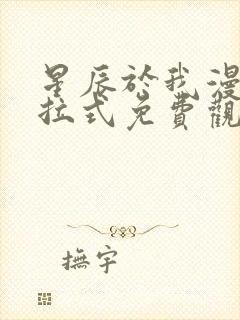 星辰於我漫
拉式免費觀
撫宇